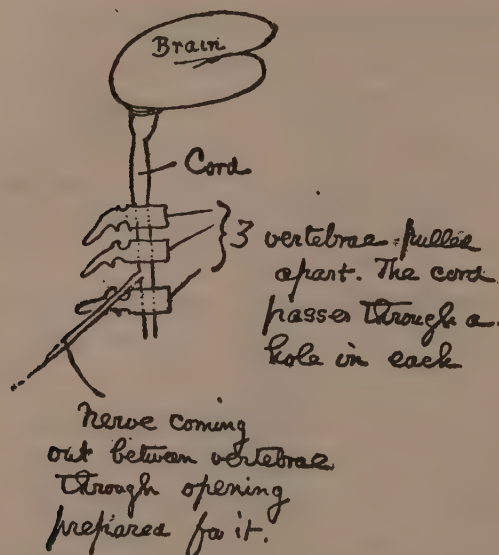 Brain
Cord
3 vertebrae pulled
apart. The cord
passes through a
hole in each
Nerve coming
out between vertebrae
through opening
prepared for it.